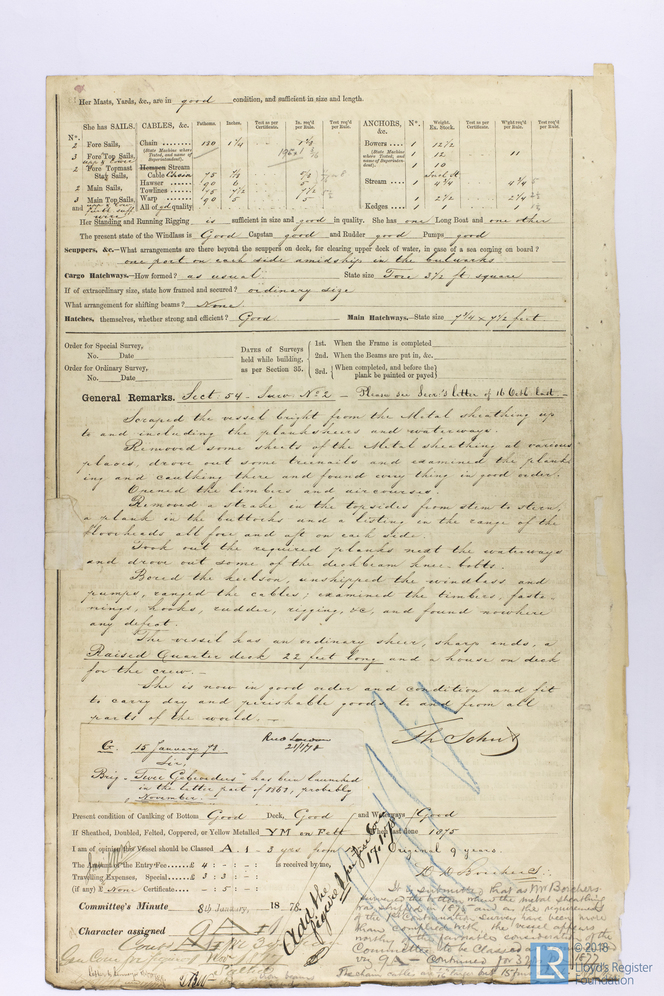 Her Masts, Yards, &c., are in good condition, and sufficient in size and length.
She has SAILS. CABLES, &c. Fathoms. Inches. Test as per Certificate. In. req'd per Rule. Test req'd per Rule. ANCHORS, &c. Nº. Weight. Ex. Stock. Test as per Certificate. W'ght req'd per Rule. Test req'd per Rule.
Nº.
2 Fore Sails, Chain 130 1¼ Bowers 1 12½
3 Fore Top Sails, (State Machine where Tested, and name of Superintendent). (State Machine where Tested, and name of Superintendent). 1 12 11
2 Fore Topmast Stay Sails, Hempen Stream Cable Chain 75 1 10
Hawser 90 Stream 1 4¾
2 Main Sails, Towlines 7½
3 Main Top Sails, Warp 90 5 5 1 2½
and All of good quality Kedges 1 1
Her Standing and Running Rigging is sufficient in size and good in quality. She has one Long Boat and one other
The present state of the Windlass is Good Capstan good and Rudder good Pumps good
Scuppers, &c.—What arrangements are there beyond the scuppers on deck, for clearing upper deck of water, in case of a sea coming on board?
one port on each side amidship in the bulwarks
Cargo Hatchways.—How formed? as usual State size Fore 3½ ft square
If of extraordinary size, state how framed and secured? ordinary size
What arrangement for shifting beams? None
Hatches, themselves, whether strong and efficient? Good Main Hatchways.—State size 7¼ x 7½ feet
Order for Special Survey, No. Date
Order for Ordinary Survey, No. Date
DATES of Surveys held while building, as per Section 35.
1st. When the Frame is completed
2nd. When the Beams are put in, &c.
3rd. When completed, and before the plank be painted or payed
General Remarks. Sect 54 - Surv Nº 2 - Please see Secr's letter of 16 Octb last -
Scraped the vessel bright from the Metal sheathing up
to and including the plansheers and waterways.
Removed some sheets of the Metal sheathing at various
places, drove out some treenails and examined the plank
ing and caulking there and found every thing in good order.
Opened the limbers and aircourses.
Removed a strake in the topsides from stem to stern,
a plank in the buttocks and a listing in the range of the
floorheads all fore and aft on each side.
Took out the required planks next the waterways
and drove out some of the deckbeam knee-bolts.
Bored the keelson, unshipped the windlass and
pumps, ranged the cables; examined the timbers, faste-
nings, hooks, rudder, rigging, &c, and found nowhere
any defect.
The vessel has an ordinary sheer, sharp ends, a
Raised Quarter deck 22 feet long and a house on deck
for the crew.-
She is now in good order and condition and fit
to carry dry and perishable goods to and from all
parts of the world.-
G. 15 January 78
Sir,
Brig - "Twee Gebroeders" has been launched
in the latter part of 1863, probably
November.
Present condition of Caulking of Bottom Good Deck, Good and Waterways Good
If Sheathed, Doubled, Felted, Coppered, or Yellow Metalled YM on Felt When last done 1875
I am of opinion this Vessel should be Classed A.1 - 3 yrs from Original 9 years.
The Amount of the Entry Fee £ 4 : - : - is received by me,
Travelling Expenses, Special £ 3 : 3 : -
(if any) £ None Certificate - : 5 : -
Committee's Minute 8th January, 1878.
Character assigned 9A-1
Add the figure 1
17.1.78
It is submitted that as Mr Borchers
surveyed the bottom when the metal sheathing
was shifted in 1875 and as the requirements
of the 1st Continuation Survey have been more
than complied with the vessel appears
worthy the favorable consideration of the
Committee to be Classed
viz 9A - Continued for 3 1877
© 2018
LR Lloyd's Register Foundation